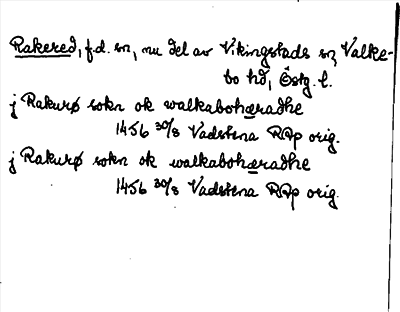 Rakered, f.d. sn, nu del av Vikingstads sn, Valke-
bo hd, Östg. l.
j Rakurø sokn ok walkabohæradhe
1456 30/8 Vadstena RAp orig.
j Rakurø sokn ok walkabohæradhe
1456 30/8 Vadstena RAp orig.